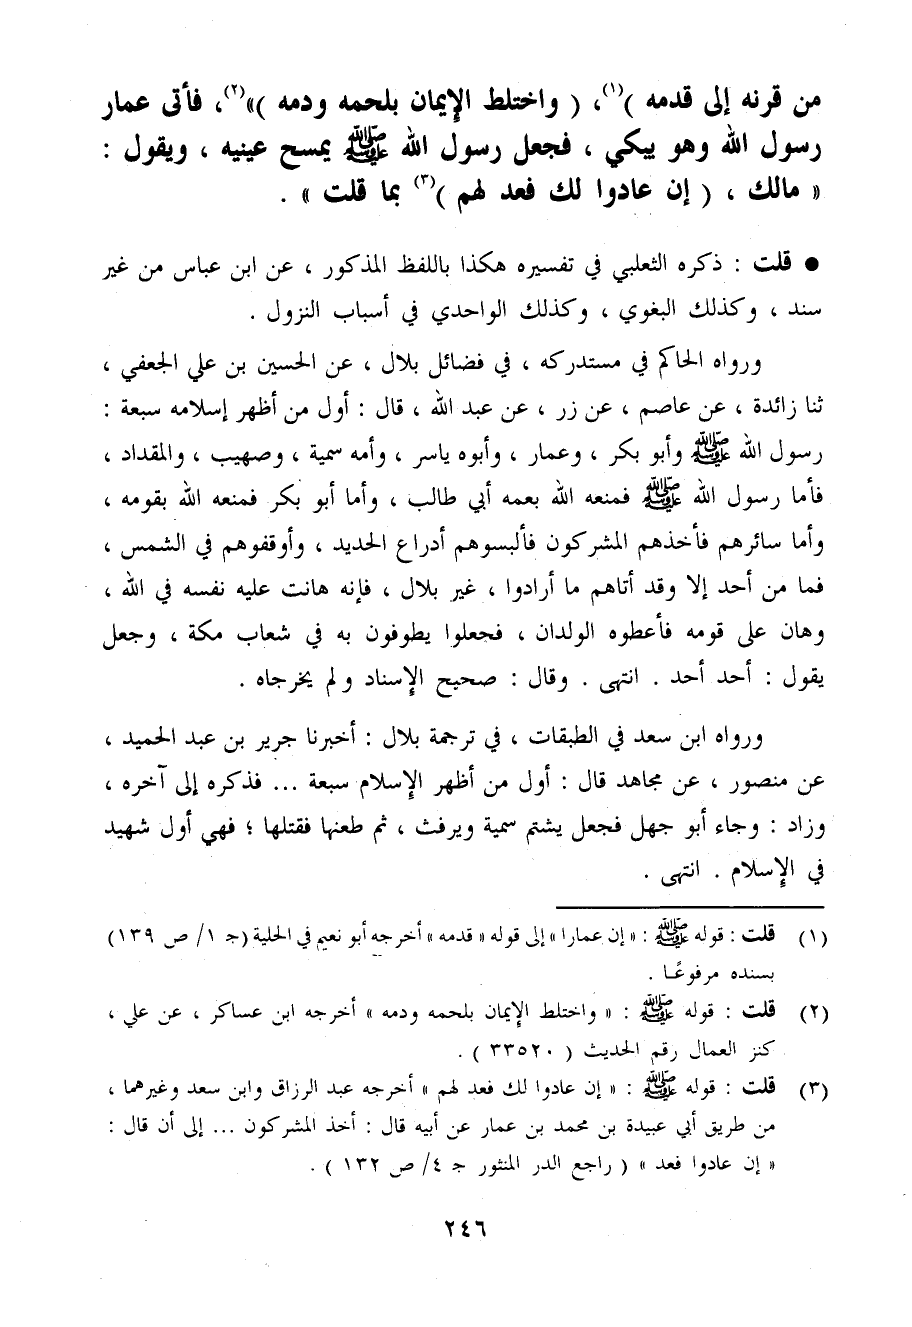 من قرنه إلى قدمه )(١)، ( واختلط الإيمان بلحمه ودمه )»(٢)، فأتى عمار
رسول الله وهو يبكي ، فجعل رسول الله ﷺ يمسح عينيه ، ويقول :
« مالك ، ( إن عادوا لك فعد لهم )(٣) بما قلت » .
● قلت : ذكره الثعلبي في تفسيره هكذا باللفظ المذكور ، عن ابن عباس من غير
سند ، وكذلك البغوي ، وكذلك الواحدي في أسباب النزول .
ورواه الحاكم في مستدركه ، في فضائل بلال ، عن الحسين بن علي الجعفي ،
ثنا زائدة ، عن عاصم ، عن زر ، عن عبد الله ، قال : أول من أظهر إسلامه سبعة :
رسول الله ﷺ وأبو بكر ، وعمار ، وأبوه ياسر ، وأمه سمية ، وصهيب ، والمقداد ،
فأما رسول الله ﷺ فمنعه الله بعمه أبي طالب ، وأما أبو بكر فمنعه الله بقومه ،
وأما سائرهم فأخذهم المشركون فألبسوهم أدراع الحديد ، وأوقفوهم في الشمس ،
فما من أحد إلا وقد أتاهم ما أرادوا ، غير بلال ، فإنه هانت عليه نفسه في الله ،
وهان على قومه فأعطوه الولدان ، فجعلوا يطوفون به في شعاب مكة ، وجعل
يقول : أحد أحد . انتهى . وقال : صحيح الإسناد ولم يخرجاه .
ورواه ابن سعد في الطبقات ، في ترجمة بلال : أخبرنا جرير بن عبد الحميد ،
عن منصور ، عن مجاهد قال : أول من أظهر الإسلام سبعة ... فذكره إلى آخره ،
وزاد : وجاء أبو جهل فجعل يشتم سمية ويرفث ، ثم طعنها فقتلها ؛ فهي أول شهيد
في الإسلام . انتهى .
(١) قلت : قوله ﷺ : « إن عمارا » إلى قوله « قدمه » أخرجه أبو نعيم في الحلية (جـ ١/ ص ١٣٩)
بسنده مرفوعًا .
(٢) قلت : قوله ﷺ : « واختلط الإيمان بلحمه ودمه » أخرجه ابن عساكر ، عن علي ،
كنز العمال رقم الحديث ( ٣٣٥٢٠ ) .
(٣) قلت : قوله ﷺ : « إن عادوا لك فعد لهم » أخرجه عبد الرزاق وابن سعد وغيرهما ،
من طريق أبي عبيدة بن محمد بن عمار عن أبيه قال : أخذ المشركون ... إلى أن قال :
« إن عادوا فعد » ( راجع الدر المنثور جـ ٤/ ص ١٣٢ ) .
٢٤٦